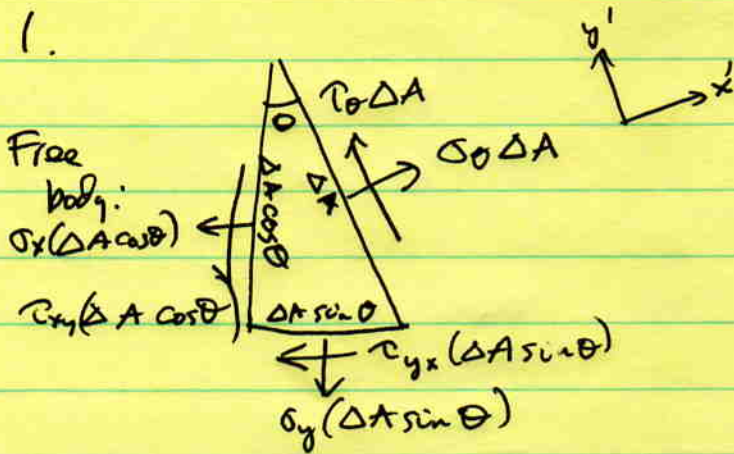 1.
y'
x'
θ
τθ ΔA
σθ ΔA
Free
body:
ΔA
ΔA cosθ
σx(ΔA cosθ)
τxy(ΔA cosθ)
ΔA sin θ
τyx(ΔA sinθ)
σy(ΔA sin θ)